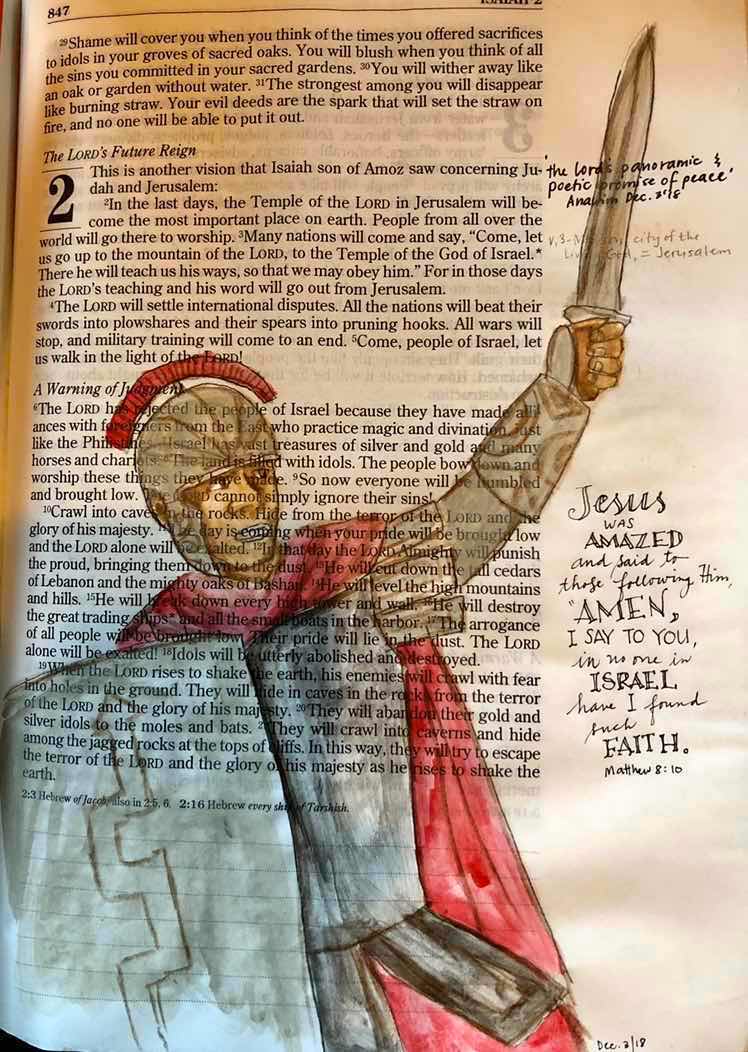 847
ISAIAH 2
29Shame will cover you when you think of the times you offered sacrifices
to idols in your groves of sacred oaks. You will blush when you think of all
the sins you committed in your sacred gardens. 30You will wither away like
an oak or garden without water. 31The strongest among you will disappear
like burning straw. Your evil deeds are the spark that will set the straw on
fire, and no one will be able to put it out.
The LORD's Future Reign
2 This is another vision that Isaiah son of Amoz saw concerning Ju-
dah and Jerusalem:
2In the last days, the Temple of the LORD in Jerusalem will be-
come the most important place on earth. People from all over the
world will go there to worship. 3Many nations will come and say, “Come, let
us go up to the mountain of the LORD, to the Temple of the God of Israel.*
There he will teach us his ways, so that we may obey him.” For in those days
the LORD's teaching and his word will go out from Jerusalem.
4The LORD will settle international disputes. All the nations will beat their
swords into plowshares and their spears into pruning hooks. All wars will
stop, and military training will come to an end. 5Come, people of Israel, let
us walk in the light of the LORD!
A Warning of Judgment
6The LORD has rejected the people of Israel because they have made alli-
ances with foreigners from the East who practice magic and divination, just
like the Philistines. 7Israel has vast treasures of silver and gold and many
horses and chariots. 8The land is filled with idols. The people bow down and
worship these things they have made. 9So now everyone will be humbled
and brought low. The LORD cannot simply ignore their sins!
10Crawl into caves in the rocks. Hide from the terror of the LORD and the
glory of his majesty. 11The day is coming when your pride will be brought low
and the LORD alone will be exalted. 12In that day the LORD Almighty will punish
the proud, bringing them down to the dust. 13He will cut down the tall cedars
of Lebanon and the mighty oaks of Bashan. 14He will level the high mountains
and hills. 15He will break down every high tower and wall. 16He will destroy
the great trading ships* and all the small boats in the harbor. 17The arrogance
of all people will be brought low. Their pride will lie in the dust. The LORD
alone will be exalted! 18Idols will be utterly abolished and destroyed.
19When the LORD rises to shake the earth, his enemies will crawl with fear
into holes in the ground. They will hide in caves in the rocks from the terror
of the LORD and the glory of his majesty. 20They will abandon their gold and
silver idols to the moles and bats. 21They will crawl into caverns and hide
among the jagged rocks at the tops of cliffs. In this way, they will try to escape
the terror of the LORD and the glory of his majesty as he rises to shake the
earth.
2:3 Hebrew of Jacob; also in 2:5, 6. 2:16 Hebrew every ship of Tarshish.
'the Lord's panoramic &
poetic promise of peace'
Dec. 3'18
v. 3 - city of the
God, = Jerusalem
Jesus
WAS
AMAZED
and said to
those following Him,
"AMEN,
I SAY TO YOU,
in no one in
ISRAEL
have I found
such
FAITH.
Matthew 8:10
Dec. 3/18